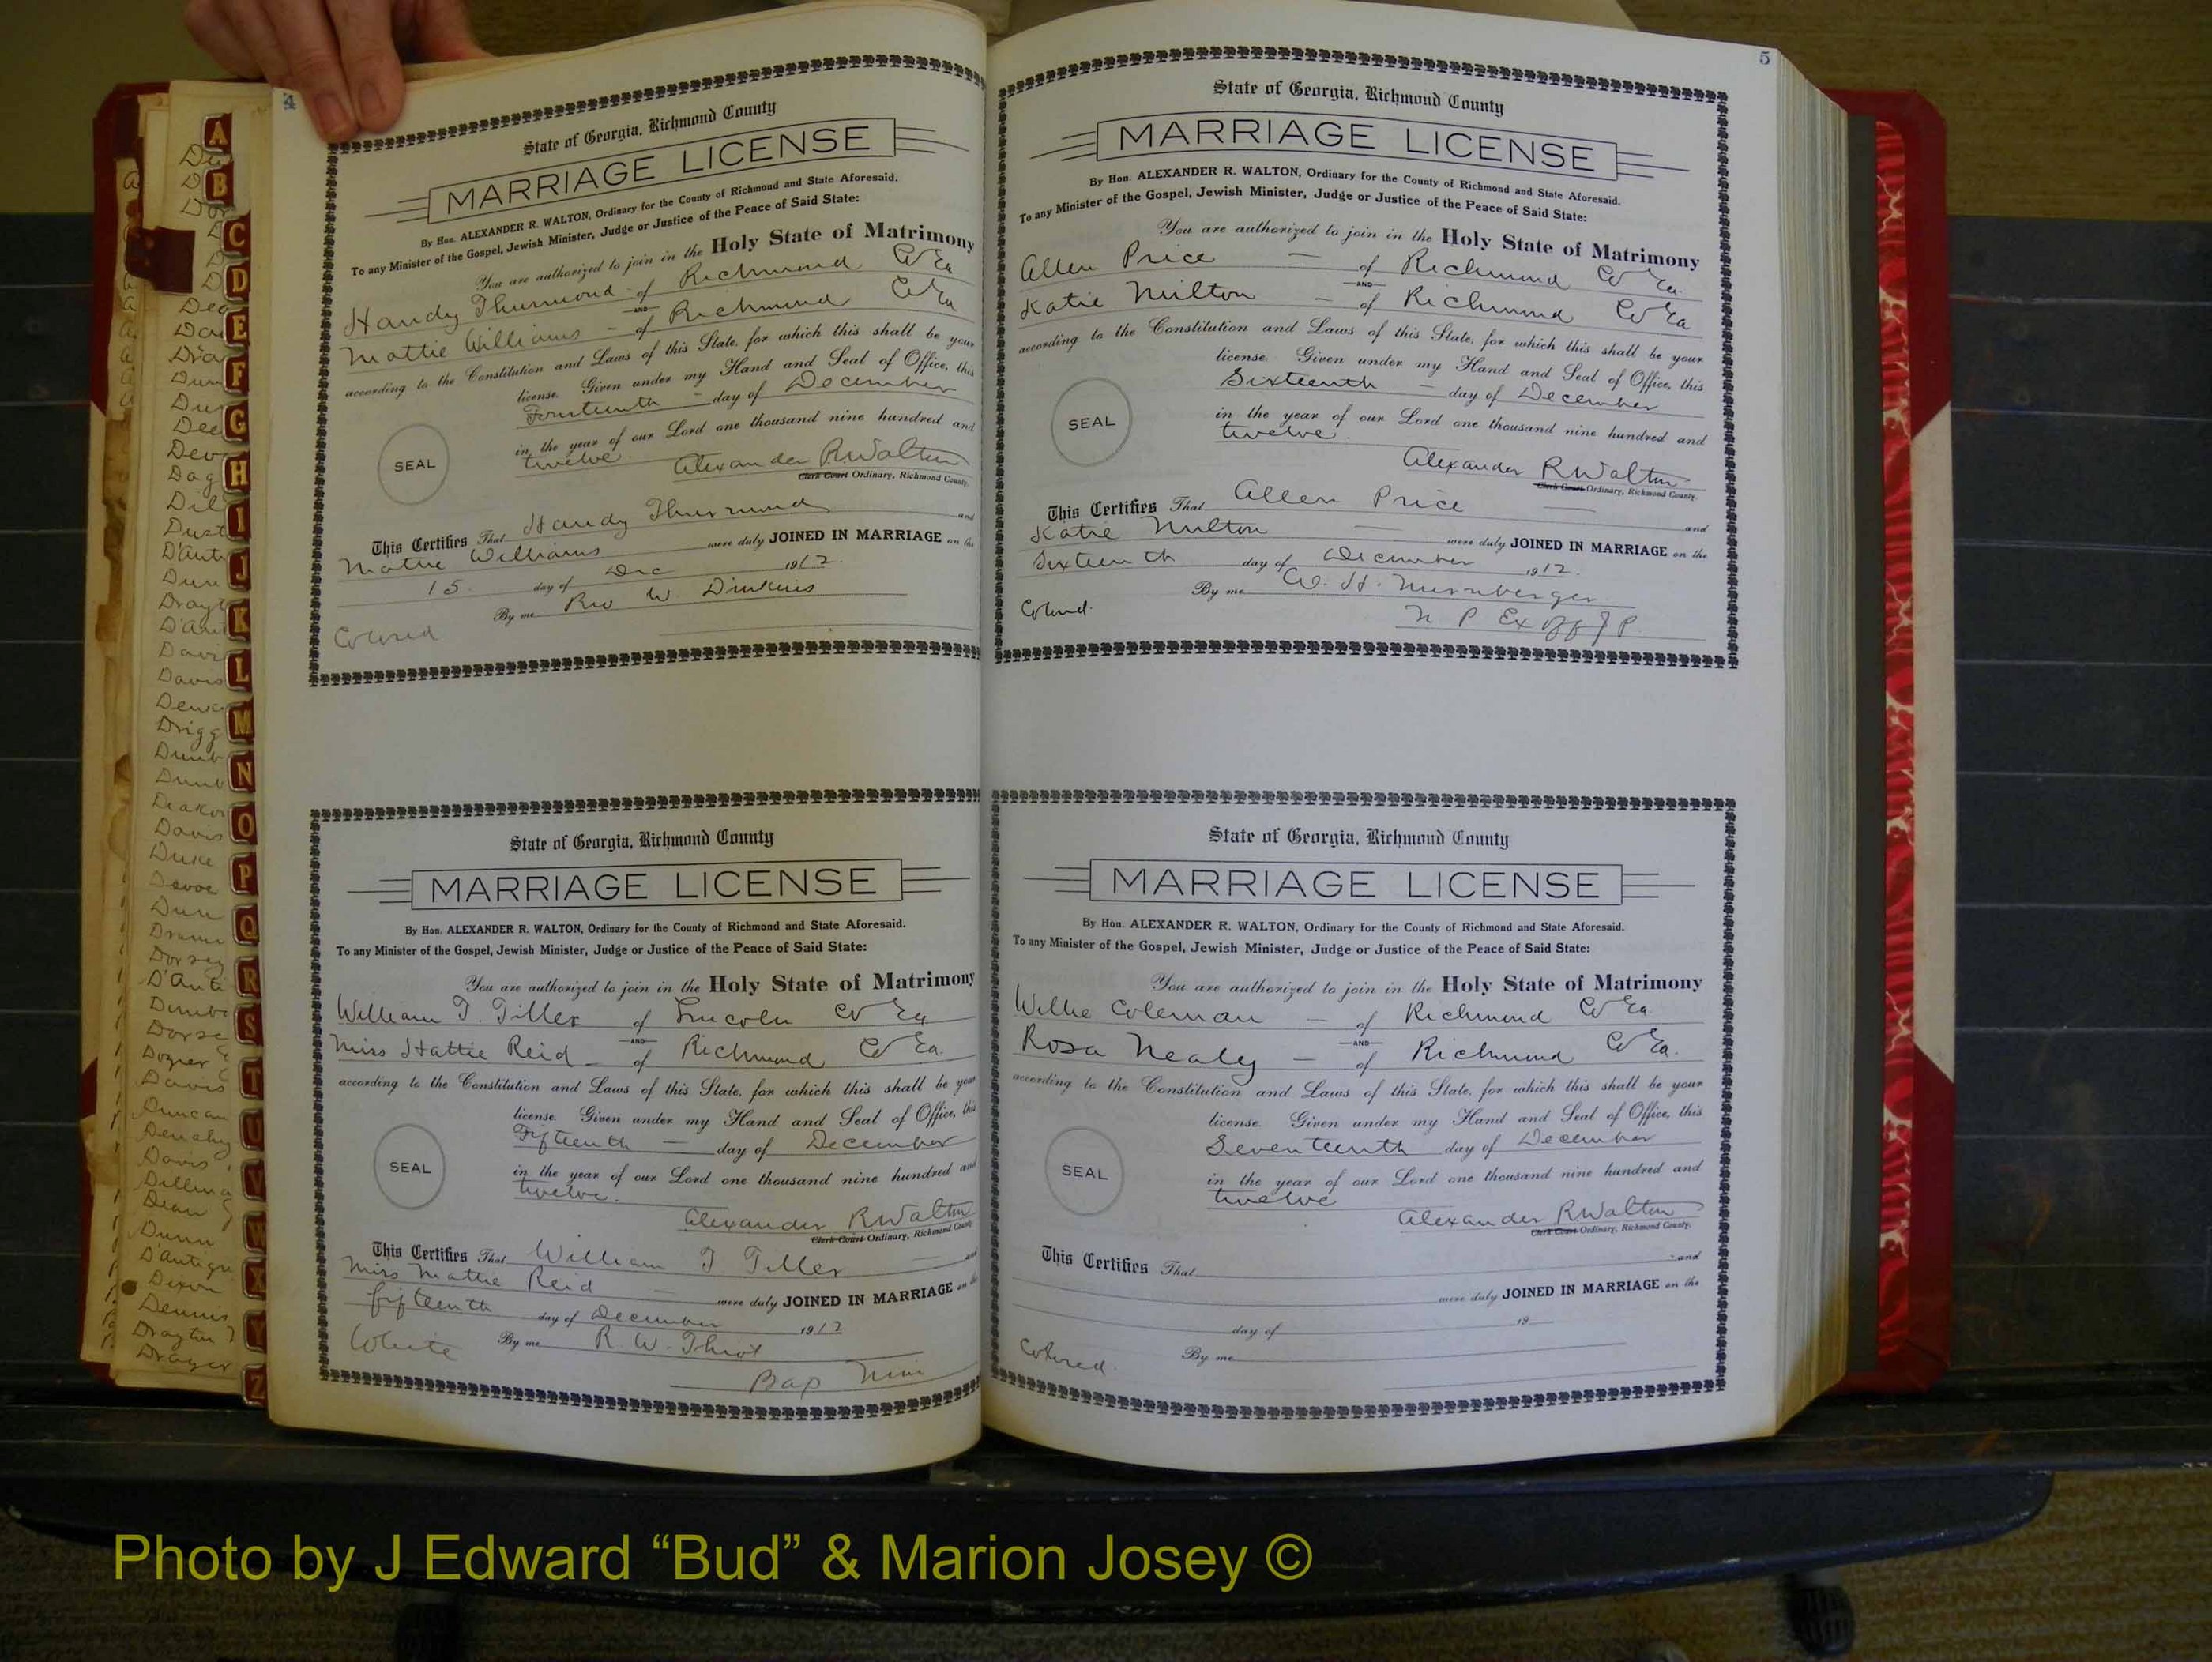 4
State of Georgia, Richmond County
MARRIAGE LICENSE
By Hon. ALEXANDER R. WALTON, Ordinary for the County of Richmond and State Aforesaid.
To any Minister of the Gospel, Jewish Minister, Judge or Justice of the Peace of Said State:
You are authorized to join in the Holy State of Matrimony
Handy Thurmond - of Richmond Co Ga
AND
Mattie Williams - of Richmond Co Ga
according to the Constitution and Laws of this State, for which this shall be your
license. Given under my Hand and Seal of Office, this
Fourteenth - day of December
in the year of our Lord one thousand nine hundred and
twelve.
SEAL
Alexander R Walton
Clerk Court Ordinary, Richmond County.
This Certifies That Handy Thurmond and
Mattie Williams were duly JOINED IN MARRIAGE on the
15 day of Dec 1912.
By me Rev W. Dinkins
Colored
State of Georgia, Richmond County
MARRIAGE LICENSE
By Hon. ALEXANDER R. WALTON, Ordinary for the County of Richmond and State Aforesaid.
To any Minister of the Gospel, Jewish Minister, Judge or Justice of the Peace of Said State:
You are authorized to join in the Holy State of Matrimony
William T. Tiller of Lincoln Co Ga
AND
Miss Hattie Reid - of Richmond Co Ga.
according to the Constitution and Laws of this State, for which this shall be your
license. Given under my Hand and Seal of Office, this
Fifteenth - day of December
in the year of our Lord one thousand nine hundred and
twelve.
SEAL
Alexander R Walton
Clerk Court Ordinary, Richmond County
This Certifies That William T Tiller and
Miss Mattie Reid - were duly JOINED IN MARRIAGE on the
fifteenth day of December 1912
By me R. W. Thiot
White
Bap Min
5
State of Georgia, Richmond County
MARRIAGE LICENSE
By Hon. ALEXANDER R. WALTON, Ordinary for the County of Richmond and State Aforesaid.
To any Minister of the Gospel, Jewish Minister, Judge or Justice of the Peace of Said State:
You are authorized to join in the Holy State of Matrimony
Allen Price - of Richmond Co Ga.
AND
Katie Milton - of Richmond Co Ga
according to the Constitution and Laws of this State, for which this shall be your
license. Given under my Hand and Seal of Office, this
Sixteenth - day of December
in the year of our Lord one thousand nine hundred and
twelve.
SEAL
Alexander R Walton
Clerk Court Ordinary, Richmond County.
This Certifies That Allen Price - and
Katie Milton - were duly JOINED IN MARRIAGE on the
Sixteenth day of December 1912.
By me W. H. Nurnberger
Colored.
N P Ex Off J P
State of Georgia, Richmond County
MARRIAGE LICENSE
By Hon. ALEXANDER R. WALTON, Ordinary for the County of Richmond and State Aforesaid.
To any Minister of the Gospel, Jewish Minister, Judge or Justice of the Peace of Said State:
You are authorized to join in the Holy State of Matrimony
Willie Coleman - of Richmond Co Ga.
AND
Rosa Nealy - of Richmond Co Ga.
according to the Constitution and Laws of this State, for which this shall be your
license. Given under my Hand and Seal of Office, this
Seventeenth day of December
in the year of our Lord one thousand nine hundred and
twelve
SEAL
Alexander R Walton
Clerk Court Ordinary, Richmond County.
This Certifies That and
were duly JOINED IN MARRIAGE on the
day of 19
By me
Colored.
A
B
C
D
E
F
G
H
I
J
K
L
M
N
O
P
Q
R
S
T
U
V
W
X
Y
Z
Davis
Davis
Davis
Duke
Devoe
Dorsey
Dozier
Davis
Duncan
Davis
Dean
Dunn
Dixon
Dennis
Drayton
Photo by J Edward “Bud” & Marion Josey ©